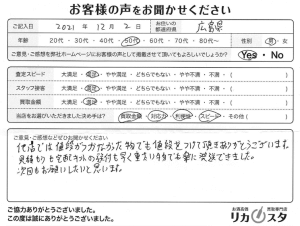 お客様の声をお聞かせください
ご記入日 2021年 12月 2日 お住いの都道府県 広島県
年齢 20代・30代・40代・50代・60代・70代・80代～ 性別 男・女
ご意見・ご感想を弊社ホームページにお客様の声として掲載させて頂いてもよろしいでしょうか？ Yes・No
査定スピード 大満足・満足・やや満足・どちらでもない・やや不満・不満・( )
スタッフ接客 大満足・満足・やや満足・どちらでもない・やや不満・不満・( )
買取金額 大満足・満足・やや満足・どちらでもない・やや不満・不満・( )
当店をお選びいただきました決め手は？ 買取金額・対応力・利便性・スピード・その他( )
ご意見・ご感想などぜひお聞かせください
他店では値段がつかなかった物でも値段をつけて頂きありがとうございます。
見積りも宅配キットの送付も早く重たい
でも楽に発送できました。
次回もお願いしたいと思います。
ご協力ありがとうございました。
この度は誠にありがとうございました。
お酒高価買取専門店
リカスタ